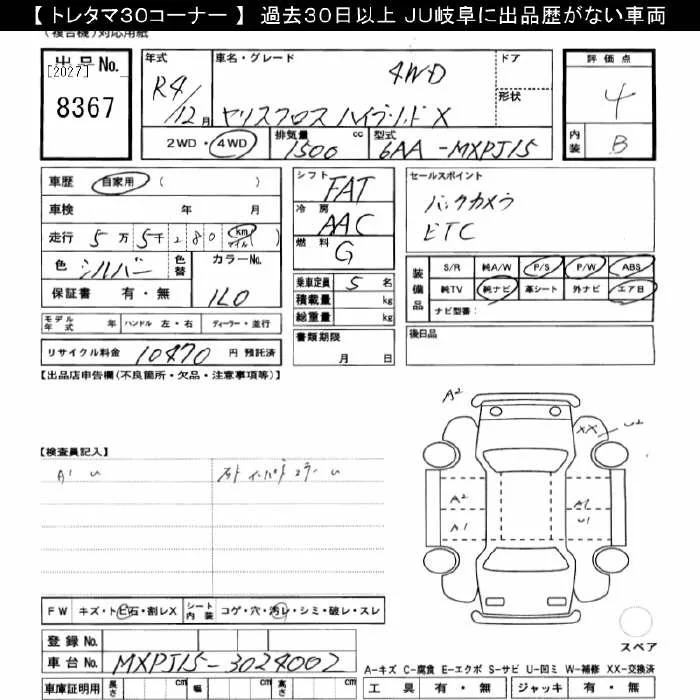 【 トレタマ30コーナー 】 過去30日以上 JU岐阜に出品歴がない車両
(複合機)対応用紙
出品No.
[2027]
8367
年式 R4/12月
車名・グレード 4WD
ヤリスクロス ハイブリッド X
ドア
形状
評価点 4
内装 B
2WD・4WD 排気量 1500 cc 型式 6AA-MXPJ15
車歴 自家用 ( )
車検 年 月
走行 5万 5千 280 km マイル ( )
色 シルバー 色替 カラーNo. 1L0
保証書 有・無
シフト FAT
冷房 AAC
燃料 G
乗車定員 5 名
積載量 kg
総重量 kg
セールスポイント
バックカメラ
ETC
装備品 S/R 純A/W P/S P/W ABS
純TV 純ナビ 革シート 外ナビ エア日
ナビ型番:
モデル年式 年 ハンドル 左・右 ディーラー・並行
リサイクル料金 10470 円 預託済
書類期限
月 日
後日品
【出品店申告欄(不良箇所・欠品・注意事項等)】
A2
XX U2
【検査員記入】
A1 U
A2 A1
A1 U1
FW キズ・トビ石・割レX シート内装 コゲ・穴・汚レ・シミ・破レ・スレ
登録No.
車台No. MXPJ15-3024002
スペア
A-キズ C-腐食 E-エクボ S-サビ U-凹ミ W-補修 XX-交換済
車庫証明用 長さ cm 幅 cm 高さ cm
工具 有・無 ジャッキ 有・無